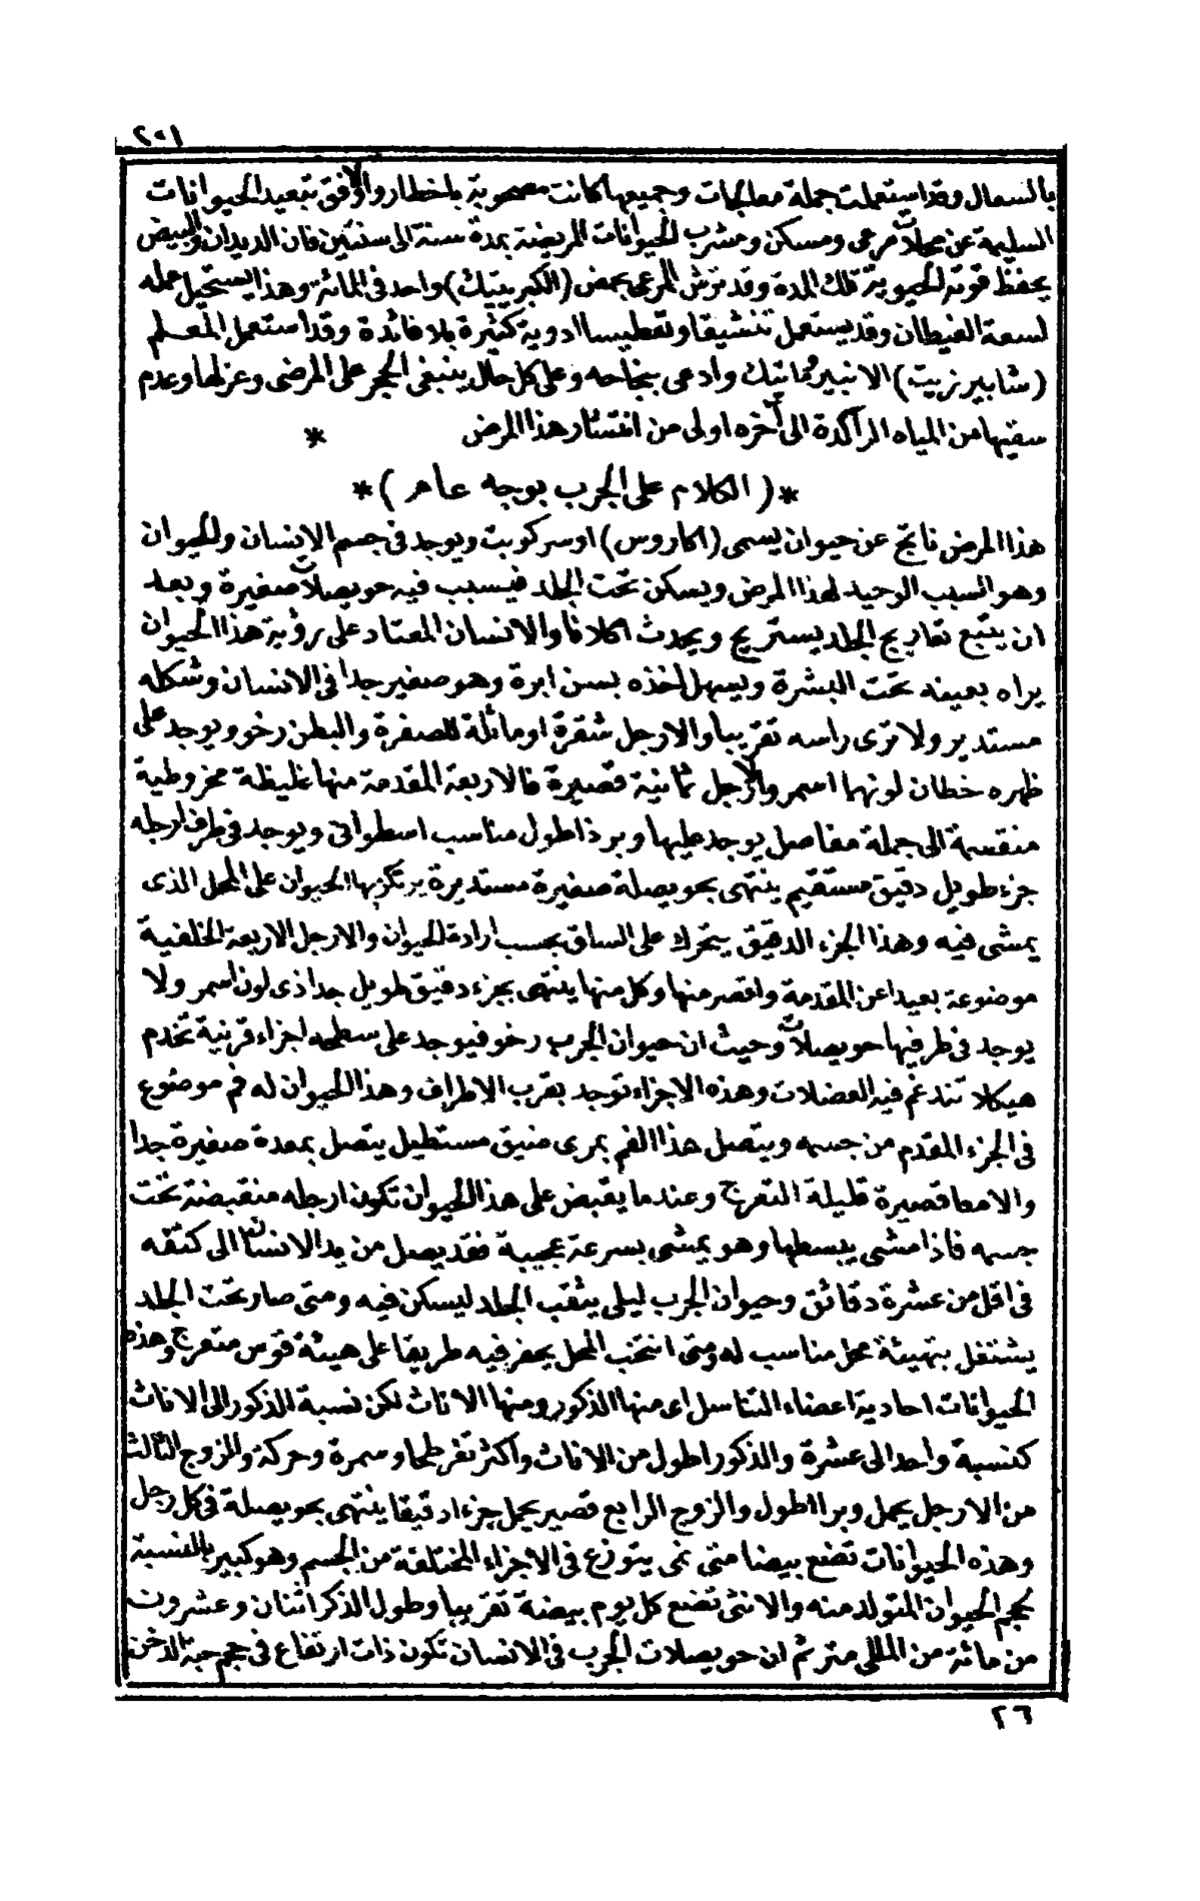 ٢٠١
بالسعال وقد استعملت جملة معالجات وجميعها كانت مصحوبة باخطار والاوفق تبعيد الحيوانات
السليمة عن محلات مرعى ومسكن ومشرب الحيوانات المريضة بمدة سنة الى سنتين فان الديدان والبيض
يحفظ قوته الحيوية تلك المدة وقد ترش المرعى بحمض (الكبريتيك) واحد فى المائة وهذا يستحيل عمله
لسعة الغيطان وقد يستعمل تنشيقا وتعطيسا ادوية كثيرة بلا فائدة وقد استعمل المعلم
(شابيرزيت) الانبير وماتيك وادعى بنجاحه وعلى كل حال ينبغى الحجر على المرضى وعزلها وعدم
سقيها من المياه الراكدة الى آخره اولى من انتشار هذا المرض *
*( الكلام على الجرب بوجه عام )*
هذا المرض ناتج عن حيوان يسمى (اكاروس) اوسركوبت ويوجد فى جسم الانسان والحيوان
وهو السبب الوحيد لهذا المرض ويسكن تحت الجلد فيسبب فيه حويصلات صغيرة وبعد
ان يتبع تعاريج الجلد يستريح ويحدث اكلانا والانسان المعتاد على رؤية هذا الحيوان
يراه بعينه تحت البشرة ويسهل اخذه بسن ابرة وهو صغير جدا فى الانسان وشكله
مستدير ولا ترى راسه تقريبا والارجل شقرة او مائلة للصفرة والبطن رخو ويوجد على
ظهره خطان لونهما اسمر والارجل ثمانية قصيرة فالاربعة المقدمة منها غليظة مخروطية
منقسمة الى جملة مفاصل يوجد عليها وبر ذا طول مناسب اسطوانى ويوجد فى طرف ارجله
جزء طويل دقيق مستقيم ينتهى بحويصلة صغيرة مستديرة يرتكز بها الحيوان على المحل الذى
يمشى فيه وهذا الجزء الدقيق يتحرك على الساق بحسب ارادة الحيوان والارجل الاربعة الخلفية
موضوعة بعيدا عن المقدمة واقصر منها وكل منها ينتهى بجزء دقيق طويل جدا ذى لون اسمر ولا
يوجد فى طرفيها حويصلات وحيث ان حيوان الجرب رخو فيوجد على سطحه اجزاء قرنية تخدم
هيكلا تندغم فيه العضلات وهذه الاجزاء توجد بقرب الاطراف وهذا الحيوان له فم موضوع
فى الجزء المقدم من جسمه ويتصل هذا الفم بمرى ضيق مستطيل يتصل بمعدة صغيرة جدا
والامعا قصيرة قليلة التعرج وعندما يقبض على هذا الحيوان تكون ارجله منقبضة تحت
جسمه فاذا مشى يبسطها وهو يمشى بسرعة عجيبة فقد يصل من يد الانسان الى كتفه
فى اقل من عشرة دقائق وحيوان الجرب ليلى يثقب الجلد ليسكن فيه ومتى صار تحت الجلد
يشتغل بتهيئة محل مناسب له ومتى انتخب المحل يحفر فيه طريقا على هيئة قوس متعرج وهذه
الحيوانات احادية اعضاء التناسل اى منها الذكور ومنها الاناث لكن نسبة الذكور الى الاناث
كنسبة واحد الى عشرة والذكور اطول من الاناث واكثر تفرطحا وسمرة وحركة والزوج الثالث
من الارجل يحمل وبرا اطول والزوج الرابع قصير يحمل جزءا دقيقا ينتهى بحويصلة فى كل رجل
وهذه الحيوانات تضع بيضا متى نمى يتوزع فى الاجزاء المختلفة من الجسم وهو كبير بالنسبة
لحجم الحيوان المتولد منه والانثى تضع كل يوم بيضة تقريبا وطول الذكر اثنان وعشرون
من مائة من المللى متر ثم ان حويصلات الجرب فى الانسان تكون ذات ارتفاع فى حجم حبة الدخن
٢٦